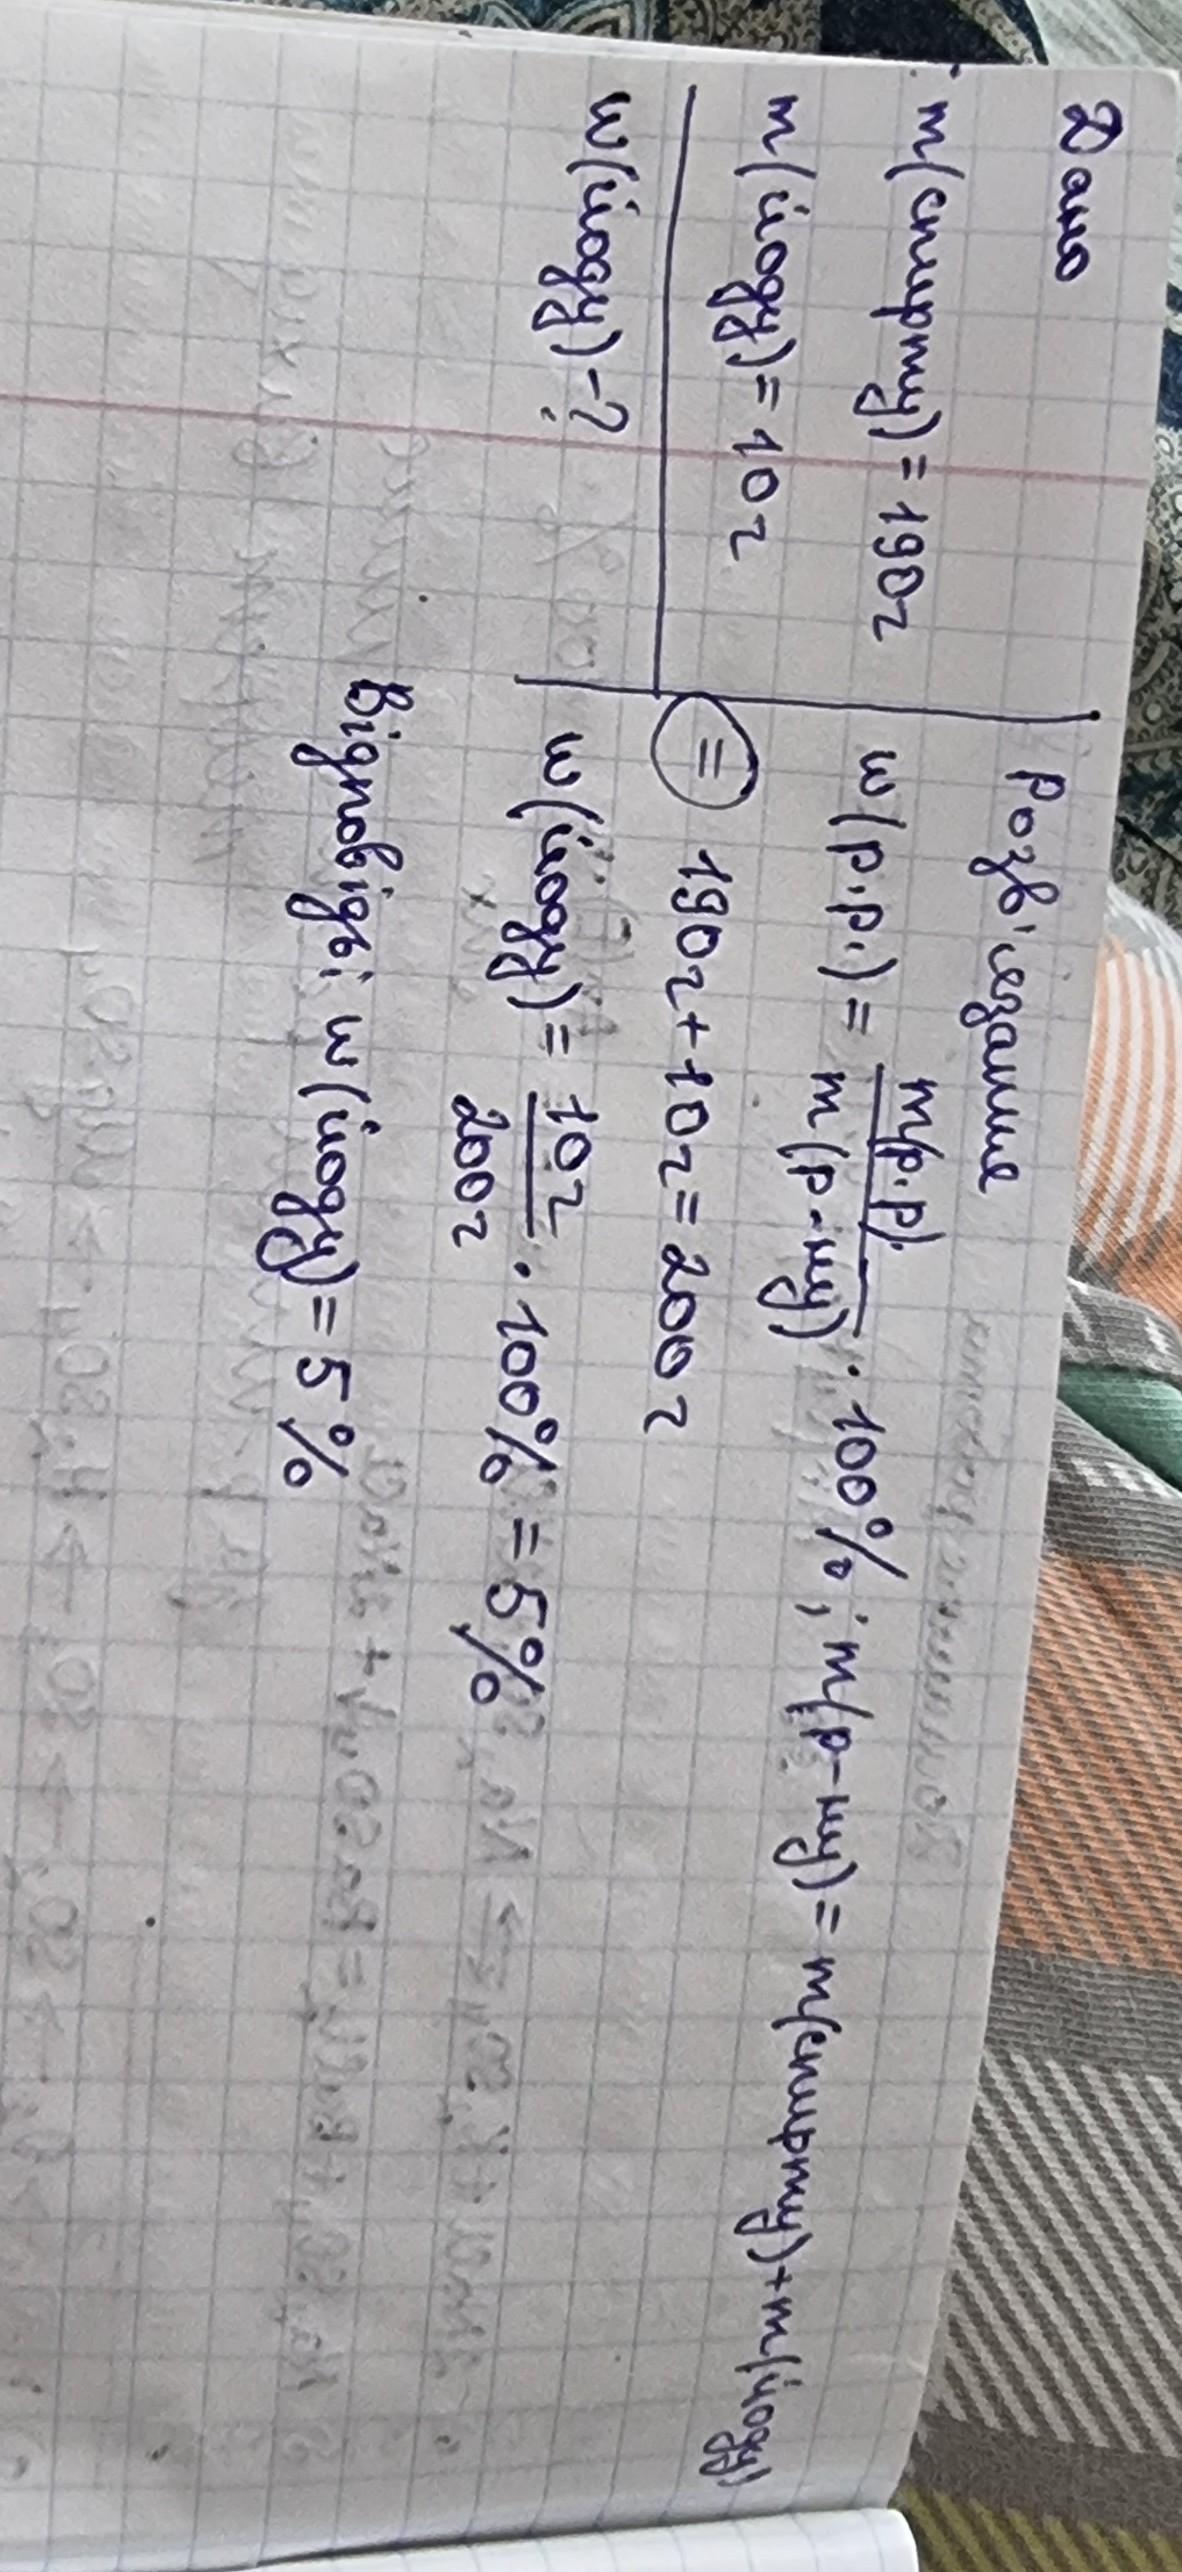 Дано
m(спирту) = 190г
m(йоду) = 10г
w(йоду) - ?
Розв'язання
w(р.р.) = m(р.р). / m(р-ну) · 100% ; m(р-ну) = m(спирту) + m(йоду)
= 190г + 10г = 200г
w(йоду) = 10г / 200г · 100% = 5%
Відповідь: w(йоду) = 5%